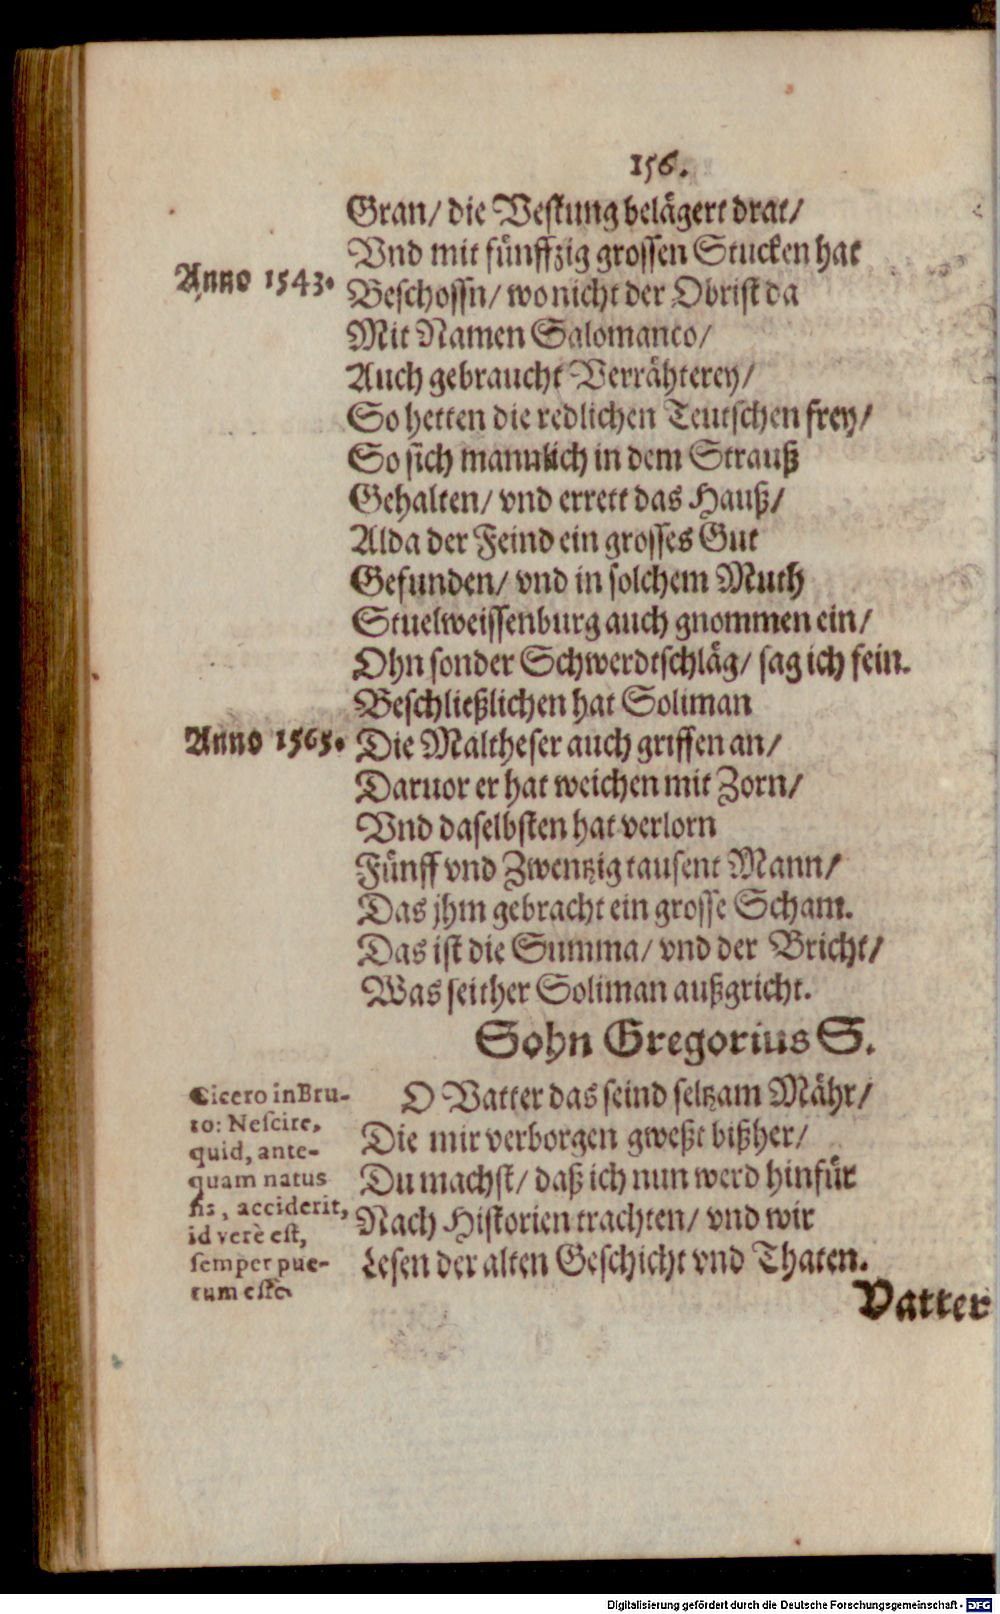 156.
Gran/ die Vestung belägert drat/
Vnd mit fünffzig grossen Stucken hat
Anno 1543.
Beschossn/ wo nicht der Obrist da
Mit Namen Salomanco/
Auch gebraucht Verrähterey/
So hetten die redlichen Teutschen frey/
So sich mannlich in dem Strauß
Gehalten/ vnd errett das Hauß/
Alda der Feind ein grosses Gut
Gefunden/ vnd in solchem Muth
Stuelweissenburg auch gnommen ein/
Ohn sonder Schwerdtschläg/ sag ich fein.
Beschließlichen hat Soliman
Anno 1565. Die Maltheser auch griffen an/
Daruor er hat weichen mit Zorn/
Vnd daselbsten hat verlorn
Fünff vnd Zwentzig tausent Mann/
Das jhm gebracht ein grosse Scham.
Das ist die Summa/ vnd der Bricht/
Was seither Soliman außgricht.
Sohn Gregorius S.
O Vatter das seind seltzam Mähr/
Die mir verborgen gweßt bißher/
Du machst/ daß ich nun werd hinfür
Nach Historien trachten/ vnd wir
Lesen der alten Geschicht vnd Thaten.
Cicero in Bru-
to: Nescire,
quid, ante-
quam natus
sis, acciderit,
id verè est,
semper pue-
rum esse
Vatter
Digitalisierung gefördert durch die Deutsche Forschungsgemeinschaft - DFG